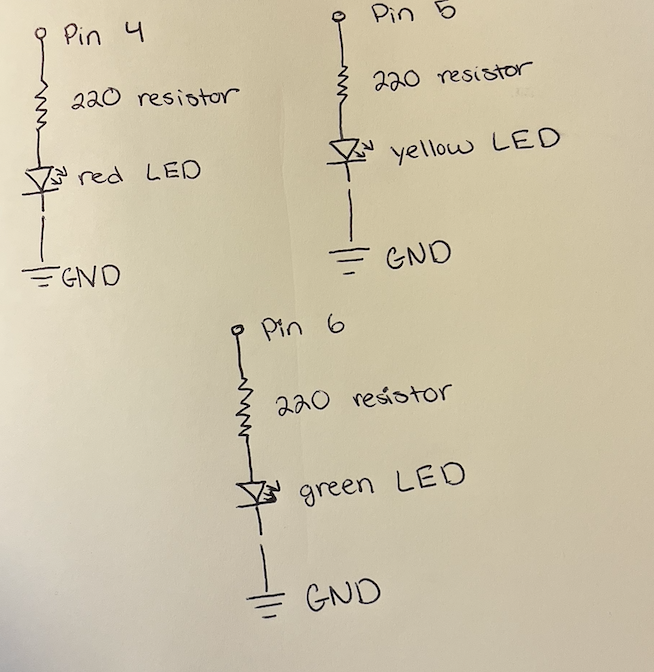 Pin 4
220 resistor
red LED
GND
Pin 5
220 resistor
yellow LED
GND
Pin 6
220 resistor
green LED
GND